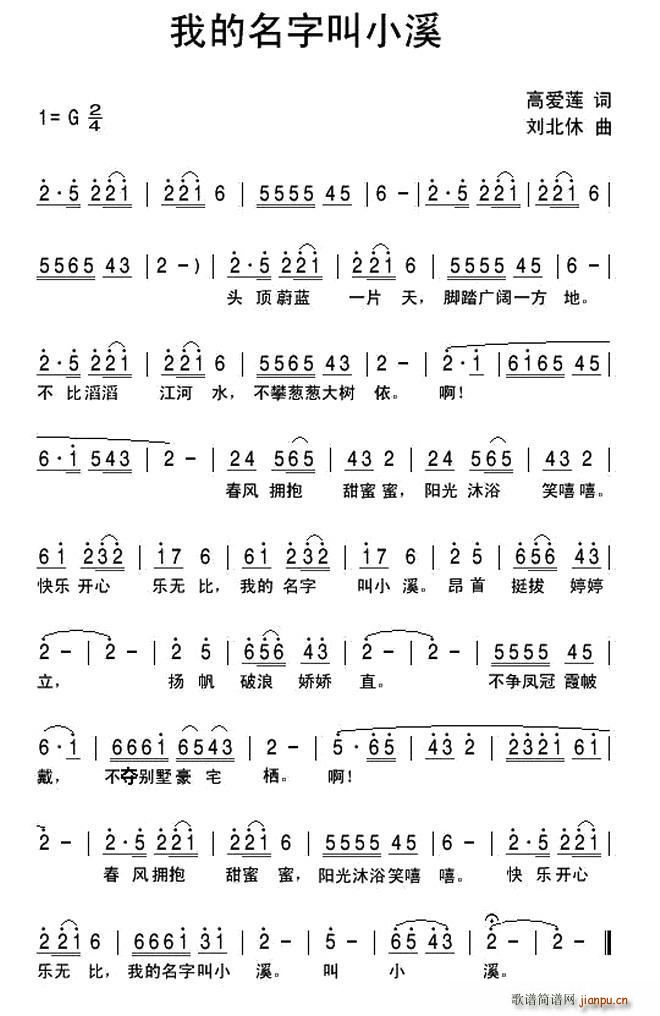 我的名字叫小溪
1= G 2/4
高爱莲 词
刘北休 曲
2·5 221 | 221 6 | 5555 45 | 6 - | 2·5 221 | 221 6 |
5565 43 | 2 - ) | 2·5 221 | 221 6 | 5555 45 | 6 - |
头 顶 蔚蓝 一片 天， 脚踏广阔一方 地。
2·5 221 | 221 6 | 5565 43 | 2 - | 2·1 | 6165 45 |
不 比 滔滔 江河 水， 不攀葱葱大树 依。 啊！
6·1 543 | 2 - | 24 565 | 43 2 | 24 565 | 43 2 |
春风 拥抱 甜蜜 蜜， 阳光 沐浴 笑嘻 嘻。
61 232 | 17 6 | 61 232 | 17 6 | 2 5 | 656 43 |
快乐 开心 乐无 比， 我的 名字 叫小 溪。 昂 首 挺拔 婷婷
2 - | 2 - | 2 5 | 656 43 | 2 - | 2 - | 5555 45 |
立， 扬 帆 破浪 娇娇 直。 不争凤冠 霞帔
6·1 | 6661 6543 | 2 - | 5·65 | 43 2 | 2321 61 |
戴， 不夺别墅 豪 宅 栖。 啊！
2 - | 2·5 221 | 221 6 | 5555 45 | 6 - | 2·5 221 |
春 风 拥抱 甜蜜 蜜， 阳光沐浴 笑嘻 嘻。 快 乐 开心
221 6 | 6661 31 | 2 - | 5 · | 65 43 | 2 - | 2 - ‖
乐无 比， 我的名字 叫小 溪。 叫 小 溪。
歌谱简谱网 jianpu.cn